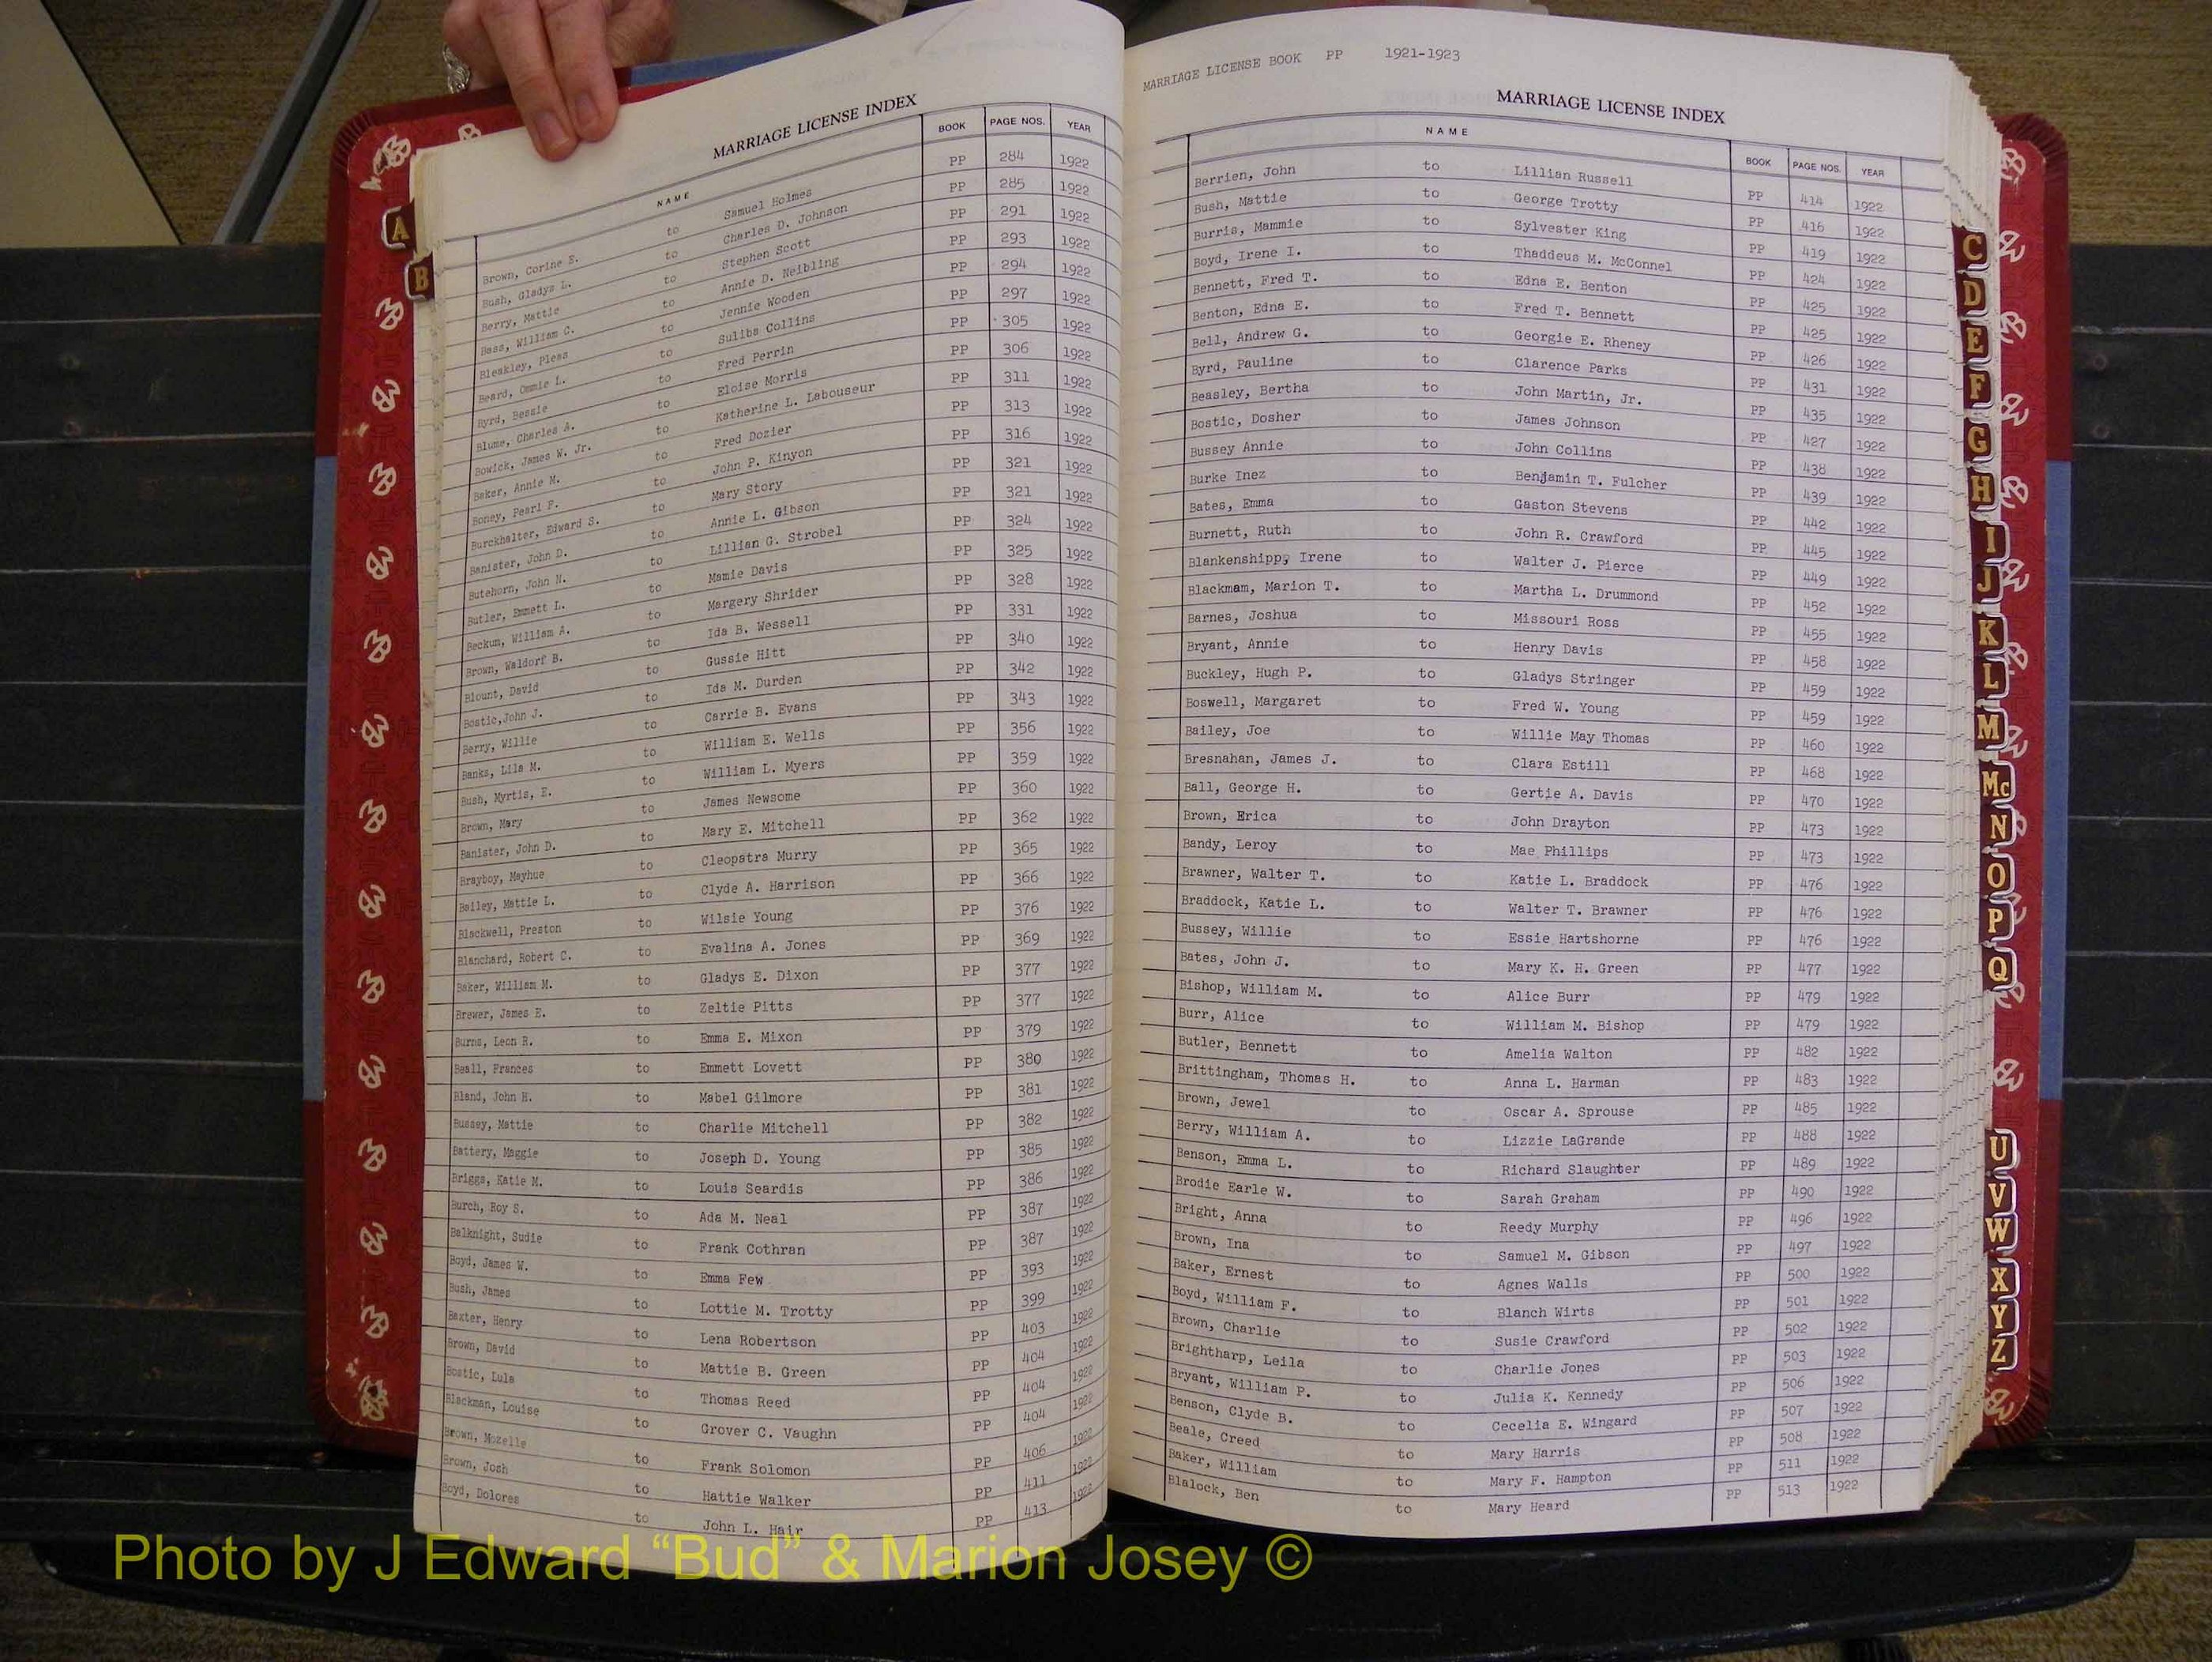 MARRIAGE LICENSE INDEX
NAME BOOK PAGE NOS. YEAR
Brown, Corine E. to Samuel Holmes PP 284 1922
Bush, Gladys L. to Charles D. Johnson PP 285 1922
Berry, Mattie to Stephen Scott PP 291 1922
Bass, William C. to Annie D. Neibling PP 293 1922
Bleakley, Pleas to Jennie Wooden PP 294 1922
Beard, Ommie L. to Suliba Collins PP 297 1922
Byrd, Bessie to Fred Perrin PP 305 1922
Blume, Charles A. to Eloise Morris PP 306 1922
Bowick, James W. Jr. to Katherine L. Labouseur PP 311 1922
Baker, Annie M. to Fred Dozier PP 313 1922
Boney, Pearl F. to John P. Kinyon PP 316 1922
Burckhalter, Edward S. to Mary Story PP 321 1922
Banister, John D. to Annie L. Gibson PP 321 1922
Butehorn, John N. to Lillian G. Strobel PP 324 1922
Butler, Emmett L. to Mamie Davis PP 325 1922
Beckum, William A. to Margery Shrider PP 328 1922
Brown, Waldorf B. to Ida B. Wessell PP 331 1922
Blount, David to Gussie Hitt PP 340 1922
Bostic,John J. to Ida M. Durden PP 342 1922
Berry, Willie to Carrie B. Evans PP 343 1922
Banks, Lila M. to William E. Wells PP 356 1922
Bush, Myrtis, E. to William L. Myers PP 359 1922
Brown, Mary to James Newsome PP 360 1922
Banister, John D. to Mary E. Mitchell PP 362 1922
Brayboy, Mayhue to Cleopatra Murry PP 365 1922
Bailey, Mattie L. to Clyde A. Harrison PP 366 1922
Blackwell, Preston to Wilsie Young PP 376 1922
Blanchard, Robert C. to Evalina A. Jones PP 369 1922
Baker, William M. to Gladys E. Dixon PP 377 1922
Brewer, James E. to Zeltie Pitts PP 377 1922
Burns, Leon R. to Emma E. Mixon PP 379 1922
Beall, Frances to Emmett Lovett PP 380 1922
Bland, John H. to Mabel Gilmore PP 381 1922
Bussey, Mattie to Charlie Mitchell PP 382 1922
Battery, Maggie to Joseph D. Young PP 385 1922
Briggs, Katie M. to Louis Seardis PP 386 1922
Burch, Roy S. to Ada M. Neal PP 387 1922
Balknight, Sudie to Frank Cothran PP 387 1922
Boyd, James W. to Emma Few PP 393 1922
Bush, James to Lottie M. Trotty PP 399 1922
Baxter, Henry to Lena Robertson PP 403 1922
Brown, David to Mattie B. Green PP 404 1922
Bostic, Lula to Thomas Reed PP 404 1922
Blackman, Louise to Grover C. Vaughn PP 404 1922
Brown, Mozelle to Frank Solomon PP 406 1922
Brown, Josh to Hattie Walker PP 411 1922
Boyd, Dolores to John L. Hair PP 413 1922
A
B
MARRIAGE LICENSE BOOK PP 1921-1923
MARRIAGE LICENSE INDEX
NAME BOOK PAGE NOS. YEAR
Berrien, John to Lillian Russell PP 414 1922
Bush, Mattie to George Trotty PP 416 1922
Burris, Mammie to Sylvester King PP 419 1922
Boyd, Irene I. to Thaddeus M. McConnel PP 424 1922
Bennett, Fred T. to Edna E. Benton PP 425 1922
Benton, Edna E. to Fred T. Bennett PP 425 1922
Bell, Andrew G. to Georgie E. Rheney PP 426 1922
Byrd, Pauline to Clarence Parks PP 431 1922
Beasley, Bertha to John Martin, Jr. PP 435 1922
Bostic, Dosher to James Johnson PP 427 1922
Bussey Annie to John Collins PP 438 1922
Burke Inez to Benjamin T. Fulcher PP 439 1922
Bates, Emma to Gaston Stevens PP 442 1922
Burnett, Ruth to John R. Crawford PP 445 1922
Blankenshipp, Irene to Walter J. Pierce PP 449 1922
Blackmam, Marion T. to Martha L. Drummond PP 452 1922
Barnes, Joshua to Missouri Ross PP 455 1922
Bryant, Annie to Henry Davis PP 458 1922
Buckley, Hugh P. to Gladys Stringer PP 459 1922
Boswell, Margaret to Fred W. Young PP 459 1922
Bailey, Joe to Willie May Thomas PP 460 1922
Bresnahan, James J. to Clara Estill PP 468 1922
Ball, George H. to Gertie A. Davis PP 470 1922
Brown, Erica to John Drayton PP 473 1922
Bandy, Leroy to Mae Phillips PP 473 1922
Brawner, Walter T. to Katie L. Braddock PP 476 1922
Braddock, Katie L. to Walter T. Brawner PP 476 1922
Bussey, Willie to Essie Hartshorne PP 476 1922
Bates, John J. to Mary K. H. Green PP 477 1922
Bishop, William M. to Alice Burr PP 479 1922
Burr, Alice to William M. Bishop PP 479 1922
Butler, Bennett to Amelia Walton PP 482 1922
Brittingham, Thomas H. to Anna L. Harman PP 483 1922
Brown, Jewel to Oscar A. Sprouse PP 485 1922
Berry, William A. to Lizzie LaGrande PP 488 1922
Benson, Emma L. to Richard Slaughter PP 489 1922
Brodie Earle W. to Sarah Graham PP 490 1922
Bright, Anna to Reedy Murphy PP 496 1922
Brown, Ina to Samuel M. Gibson PP 497 1922
Baker, Ernest to Agnes Walls PP 500 1922
Boyd, William F. to Blanch Wirts PP 501 1922
Brown, Charlie to Susie Crawford PP 502 1922
Brightharp, Leila to Charlie Jones PP 503 1922
Bryant, William P. to Julia K. Kennedy PP 506 1922
Benson, Clyde B. to Cecelia E. Wingard PP 507 1922
Beale, Creed to Mary Harris PP 508 1922
Baker, William to Mary F. Hampton PP 511 1922
Blalock, Ben to Mary Heard PP 513 1922
C
D
E
F
G
H
I
J
K
L
M
Mc
N
O
P
Q
U
V
W
X
Y
Z
Photo by J Edward “Bud” & Marion Josey ©